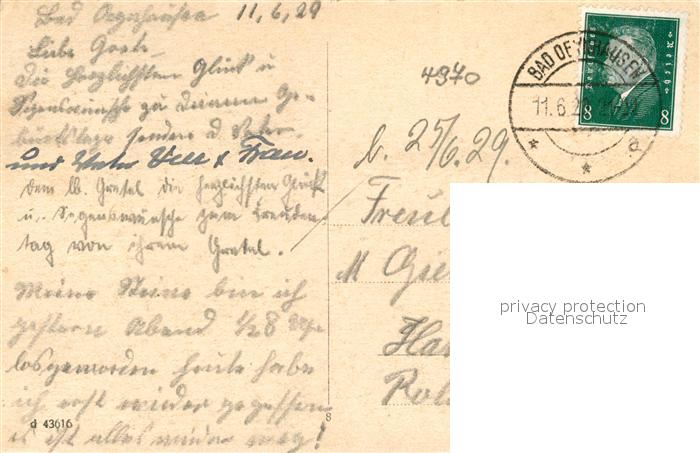 Bad Oeynhausen 11.6.29
Liebe Grete
Die herzlichsten Glück u
Segenswünsche zu Deinem Ge-
burtstage senden d. Vater
und Vetter Will & Frau.
Dem lb. Gretel die herzlichsten Glück
u. Segenswünsche zum Freuden-
tag von ihrem Gretel.
Meine Steine bin ich
gestern Abend ½8 Uhr
losgeworden heute habe
ich erst wieder gegessen
es ist alles wieder weg!
d 43616
8
4970
b. 25/6.29.
Freul
M Gie
Ha
Rol
BAD OEYNHAUSEN
11.6.2
Reich
8 8
privacy protection
Datenschutz